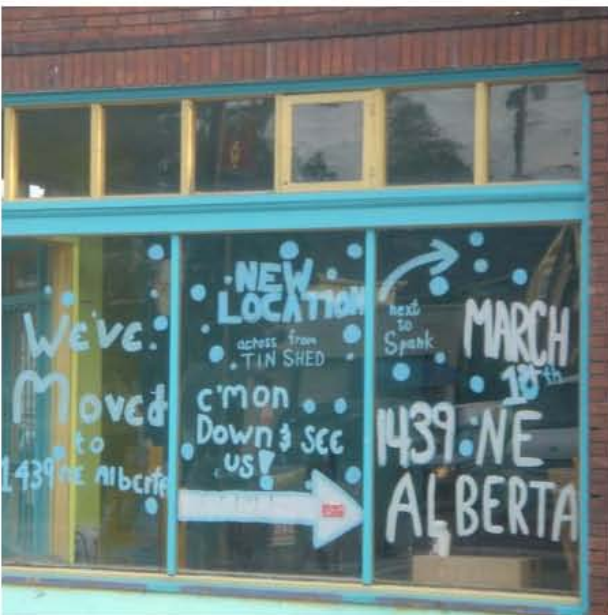 We've
Moved
to
1439 NE Alberta
NEW
LOCATION
across from
TIN SHED
c'mon
Down & see
us!
next
to
Spank
MARCH
18th
1439 NE
ALBERTA